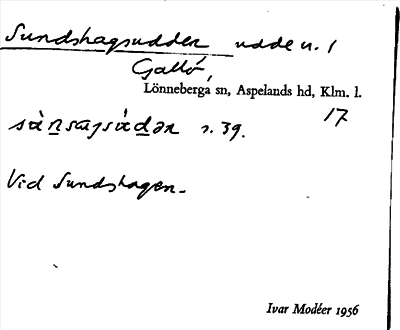 Sundshagsudden udde n. 1
Gallö,
Lönneberga sn, Aspelands hd, Klm. l.
17
s. 39.
Vid Sundshagen.
Ivar Modéer 1956